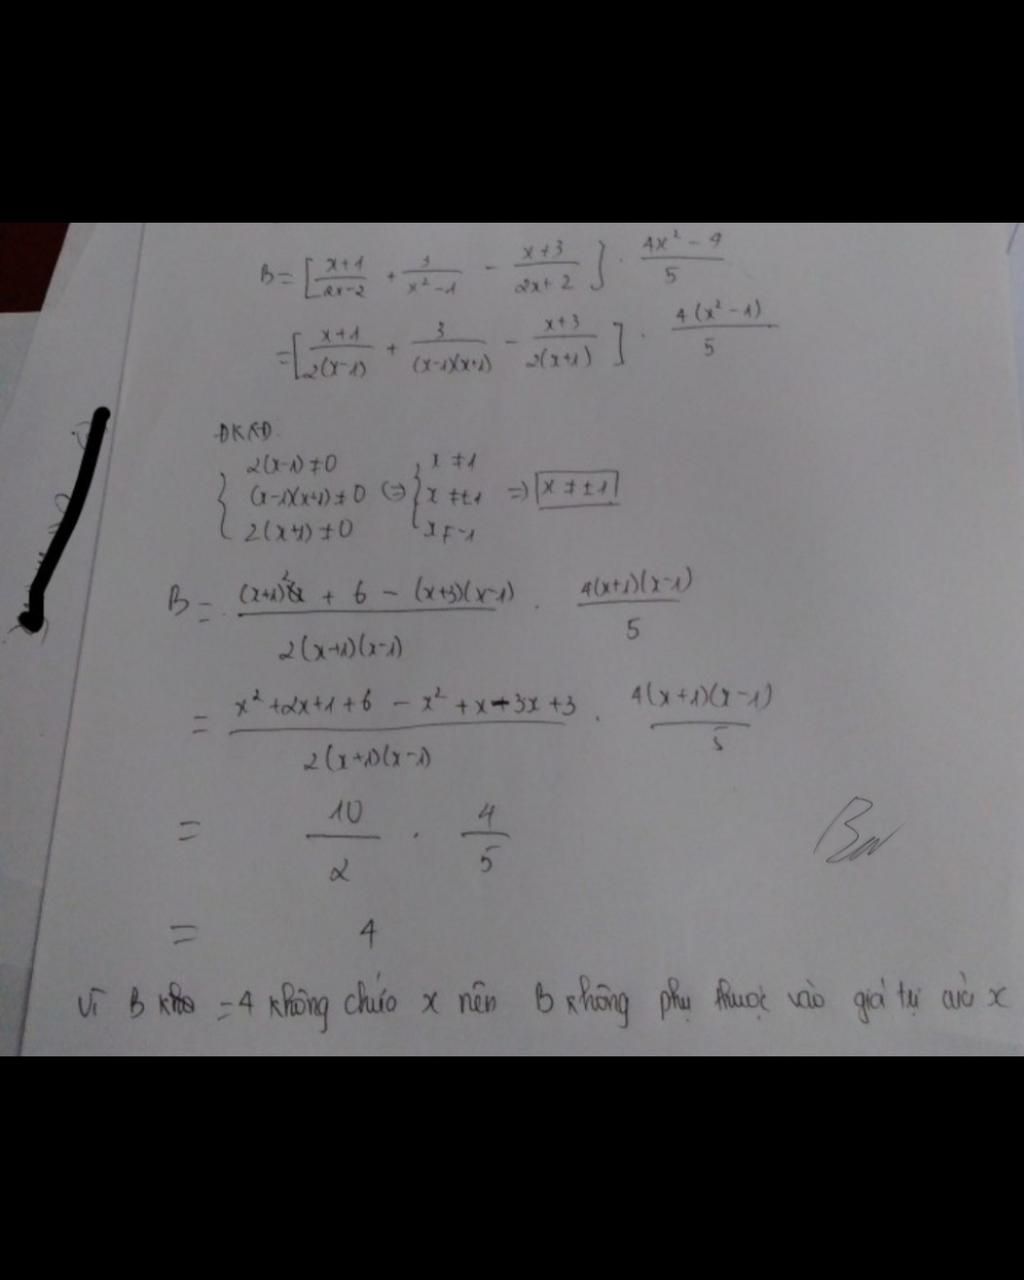 B = [ (x+1)/(2x-2) + 3/(x² - 1) - (x+3)/(2x+2) ] . (4x² - 4)/5
= [ (x+1)/(2(x-1)) + 3/((x-1)(x+1)) - (x+3)/(2(x+1)) ] . 4(x² - 1)/5
ĐKXĐ
{ 2(x-1) ≠ 0
(x-1)(x+1) ≠ 0
2(x+1) ≠ 0
<=> { x ≠ 1
x ≠ ±1
x ≠ -1
=> x ≠ ±1
B = ((x+1)² + 6 - (x+3)(x-1))/(2(x+1)(x-1)) . 4(x+1)(x-1)/5
= (x² + 2x + 1 + 6 - x² + x - 3x + 3)/(2(x+1)(x-1)) . 4(x+1)(x-1)/5
= 10/2 . 4/5
= 4
Vì B = 4 không chứa x nên B không phụ thuộc vào giá trị của x